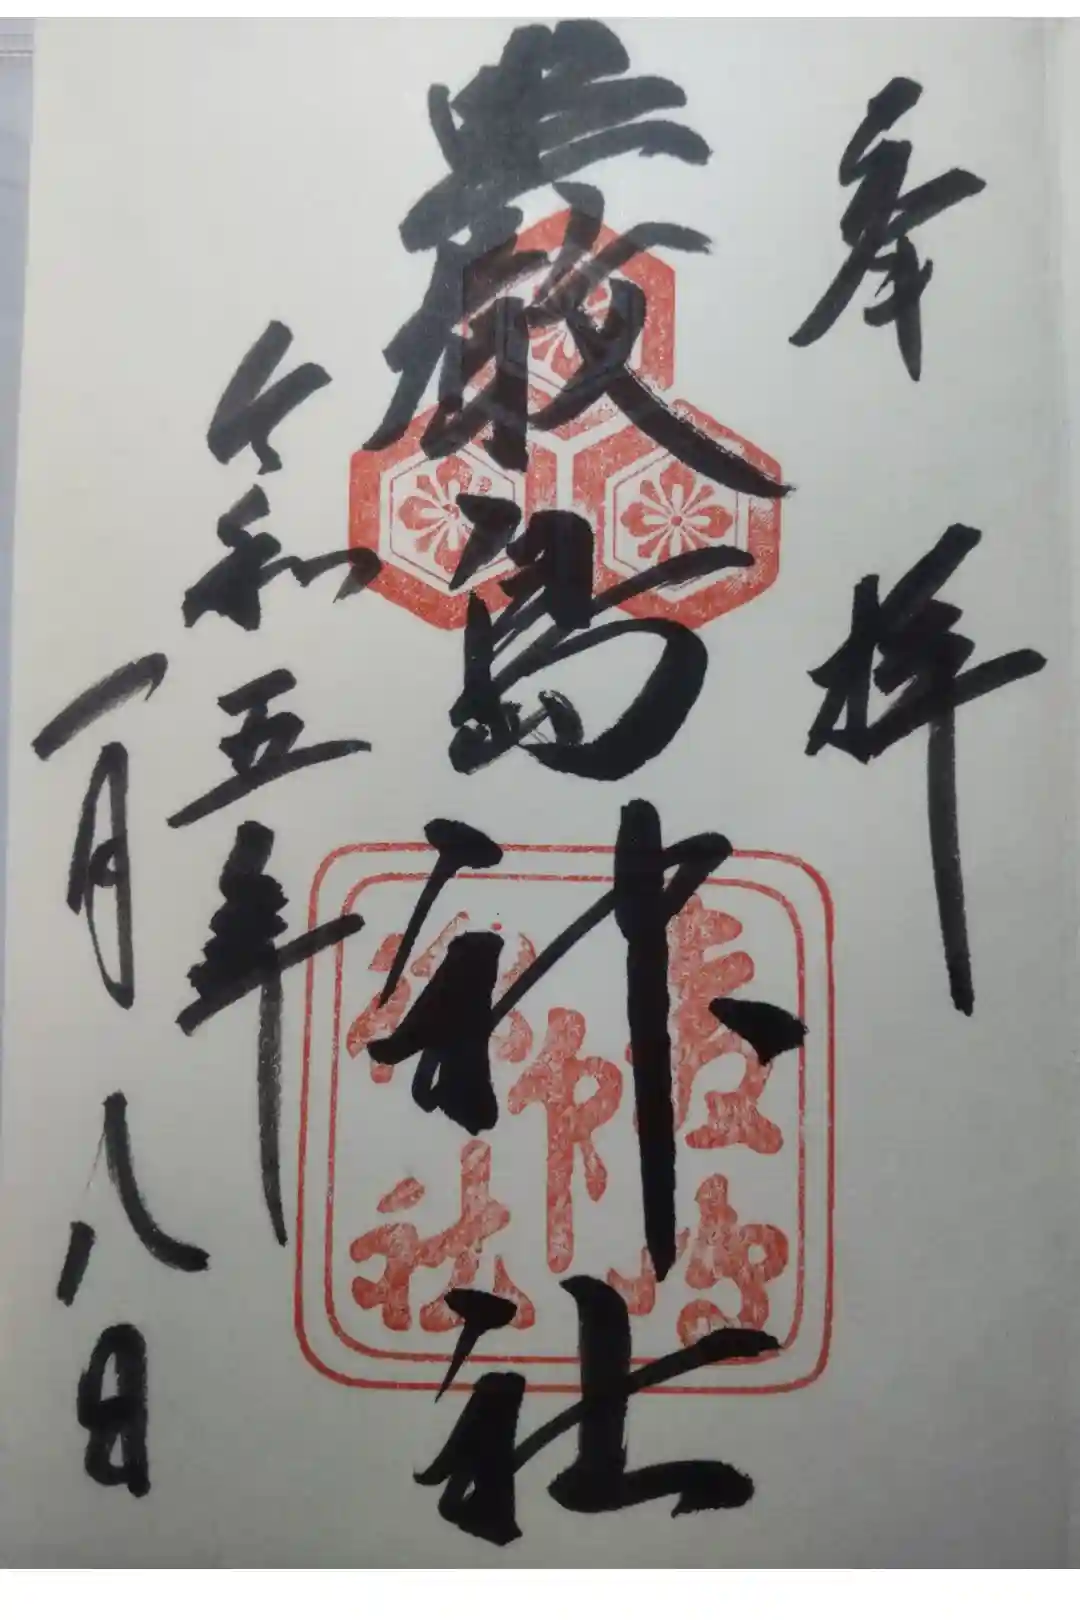 奉拝
厳島神社
令和五年
一月八日
嚴島神社